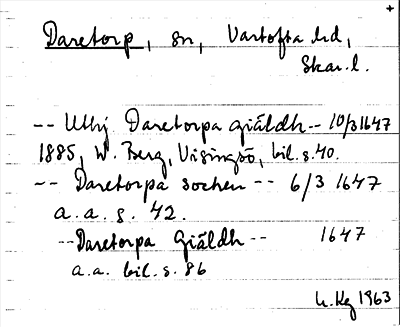 Daretorp, sn, Vartofta hd,
Skar. l.
-- Uthj Daretorpa giäldh -- 10/3 1647
1885, W. Berg, Visingsö, bil. s. 40.
-- Daretorpa sochen -- 6/3 1647
a. a. s. 42.
-- Daretorpa Giäldh -- 1647
a.a. bil. s. 86
1963